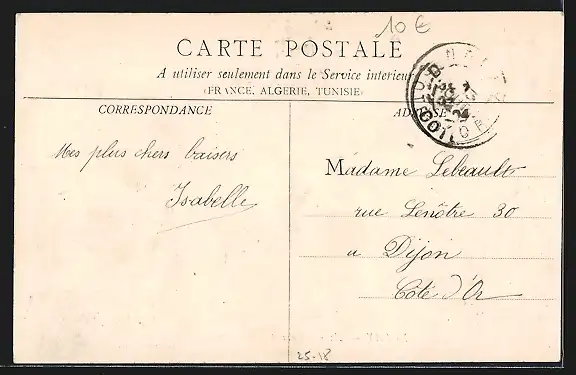 10 €
CARTE POSTALE
A utiliser seulement dans le Service intérieur
(FRANCE, ALGERIE, TUNISIE)
CORRESPONDANCE
ADRESSE
Mes plus chers baisers
Isabelle
Madame Lebeault
rue Lenôtre 30
a Dijon
Côte d'Or
25-18